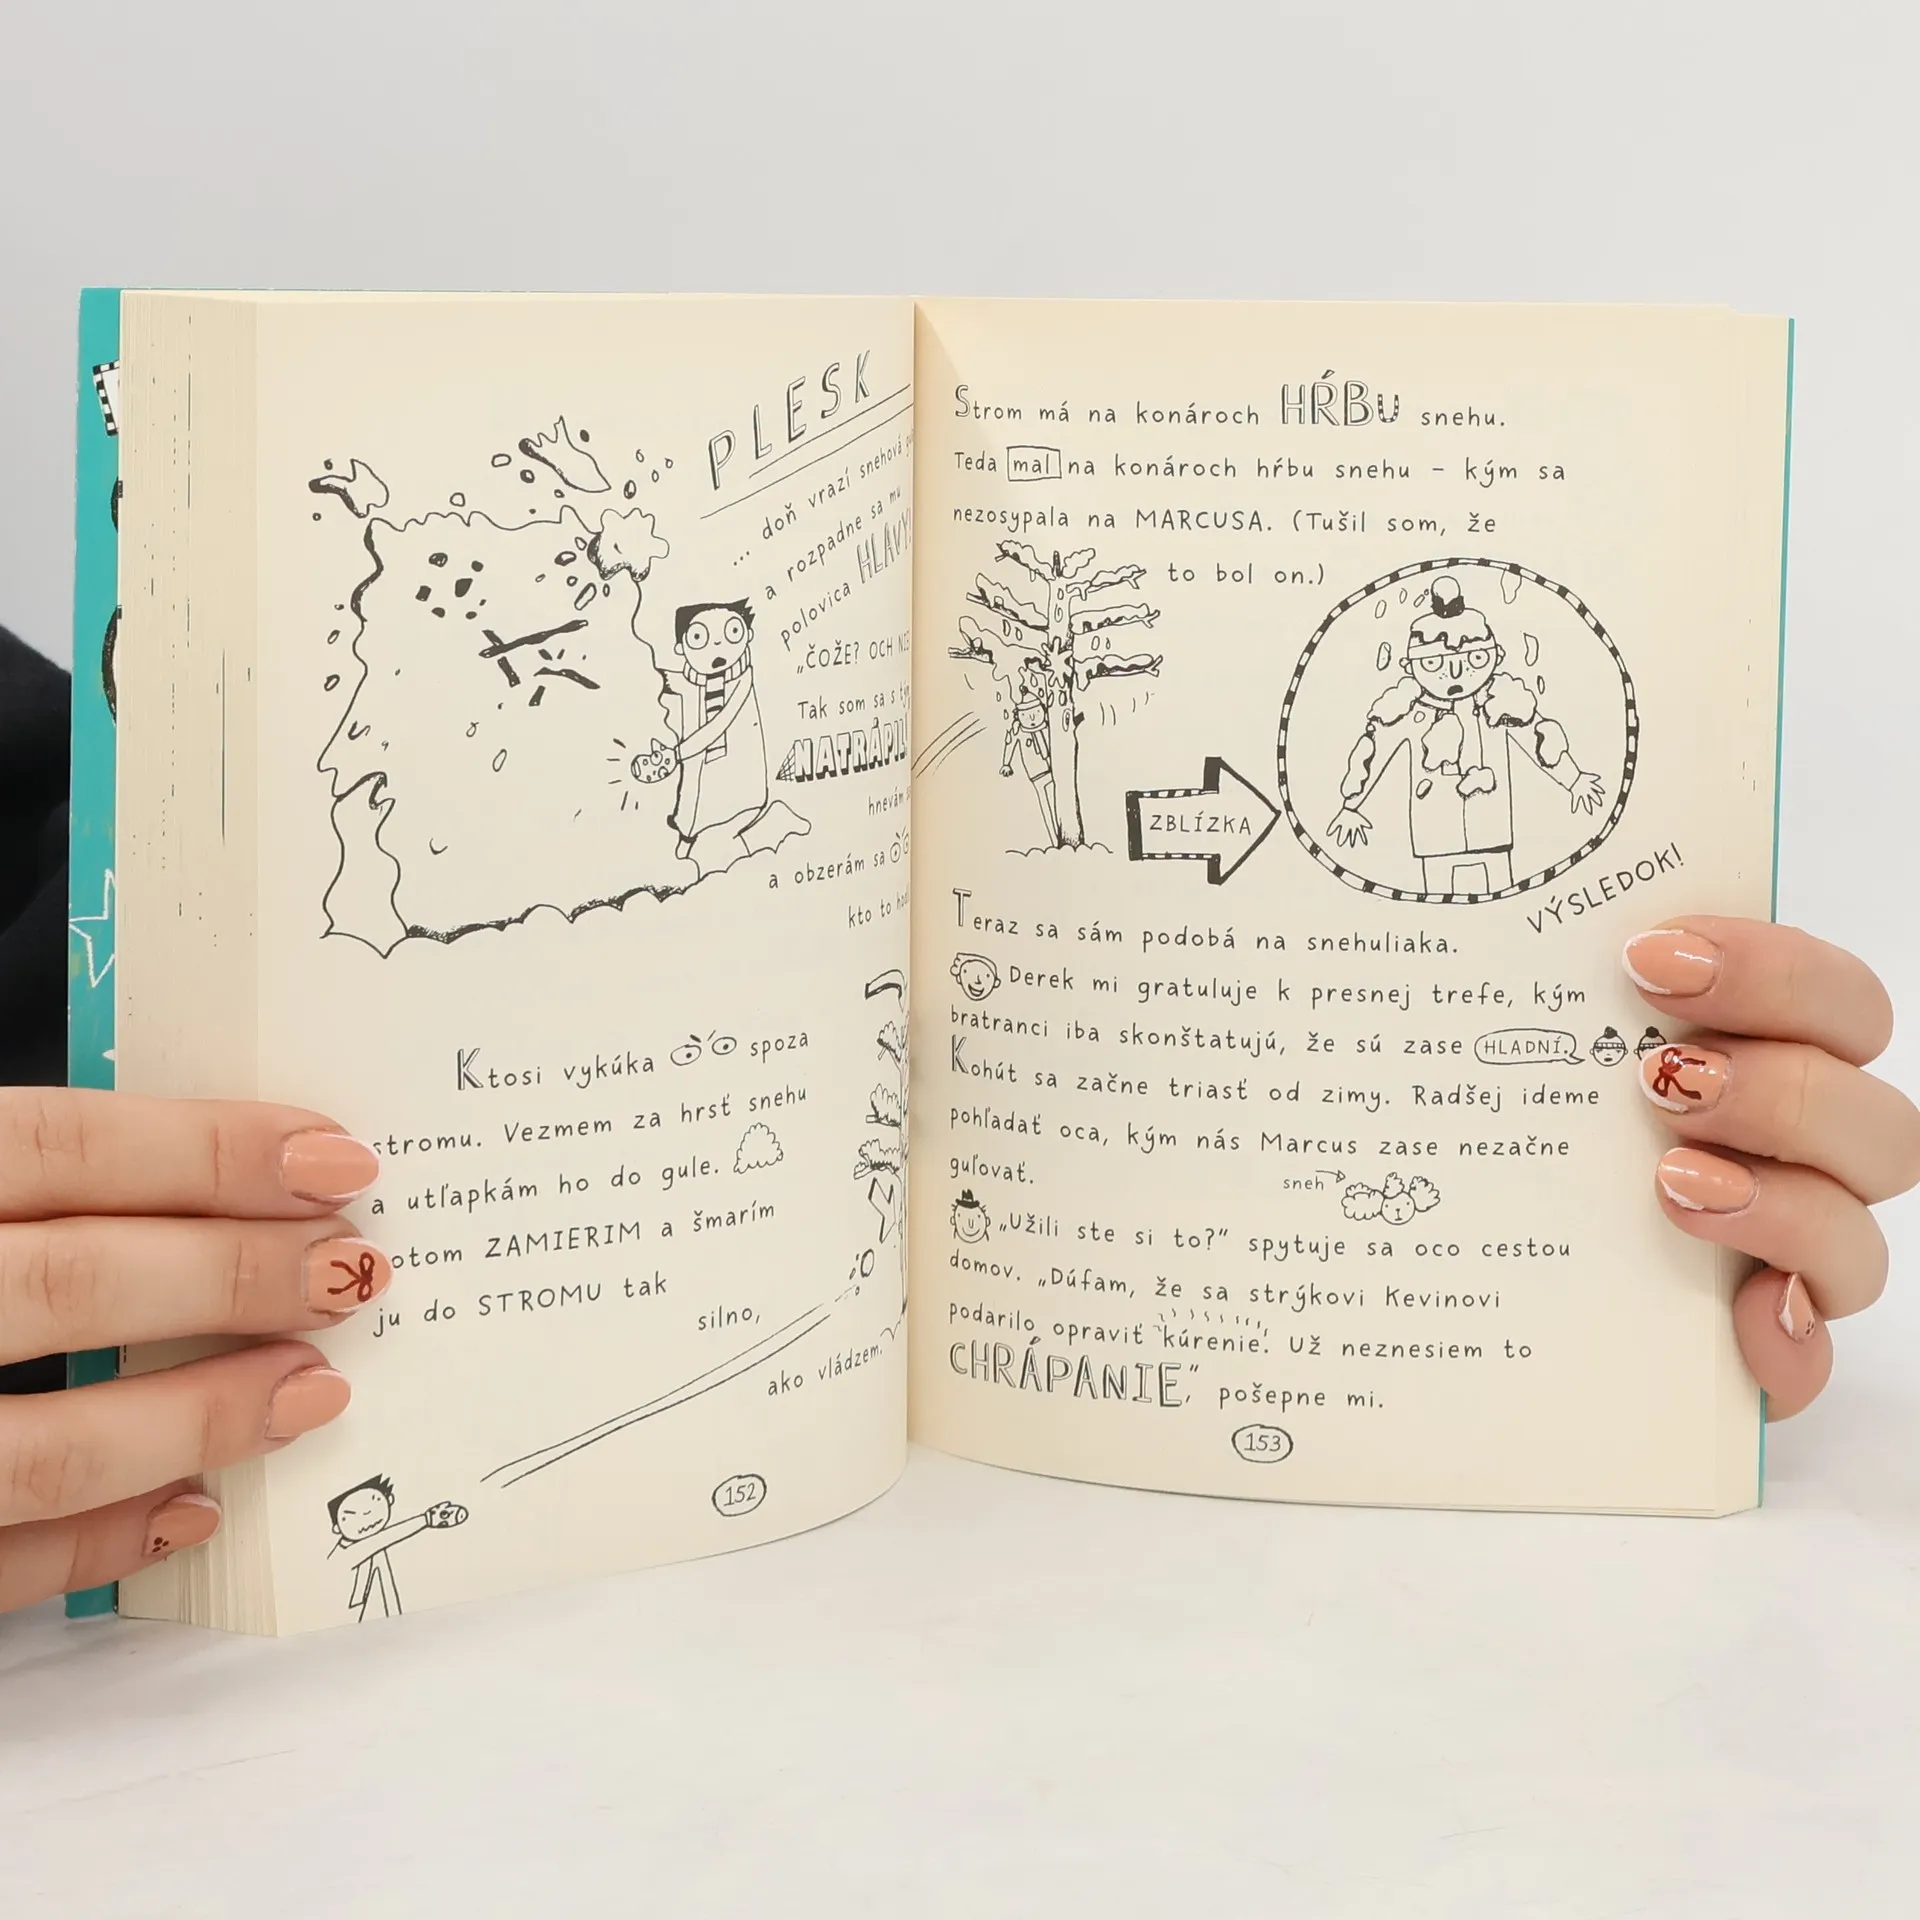 PLESK
... doň vrazí snehová
a rozpadne sa mu
polovica HLAVY!
„ČOŽE? OCH NIE
Tak som sa s
NATRÁPIL
hnevám
a obzerám sa
kto to
Ktosi vykúka spoza
stromu. Vezmem za hrsť snehu
a utľapkám ho do gule.
otom ZAMIERIM a šmarím
ju do STROMU tak
silno,
ako vládzem.
152
Strom má na konároch HŔBU snehu.
Teda mal na konároch hŕbu snehu – kým sa
nezosypala na MARCUSA. (Tušil som, že
to bol on.)
ZBLÍZKA
VÝSLEDOK!
Teraz sa sám podobá na snehuliaka.
Derek mi gratuluje k presnej trefe, kým
bratranci iba skonštatujú, že sú zase HLADNÍ.
Kohút sa začne triasť od zimy. Radšej ideme
pohľadať oca, kým nás Marcus zase nezačne
guľovať.
sneh
„Užili ste si to?“ spytuje sa oco cestou
domov. „Dúfam, že sa strýkovi Kevinovi
podarilo opraviť kúrenie. Už neznesiem to
CHRÁPANIE,“ pošepne mi.
153